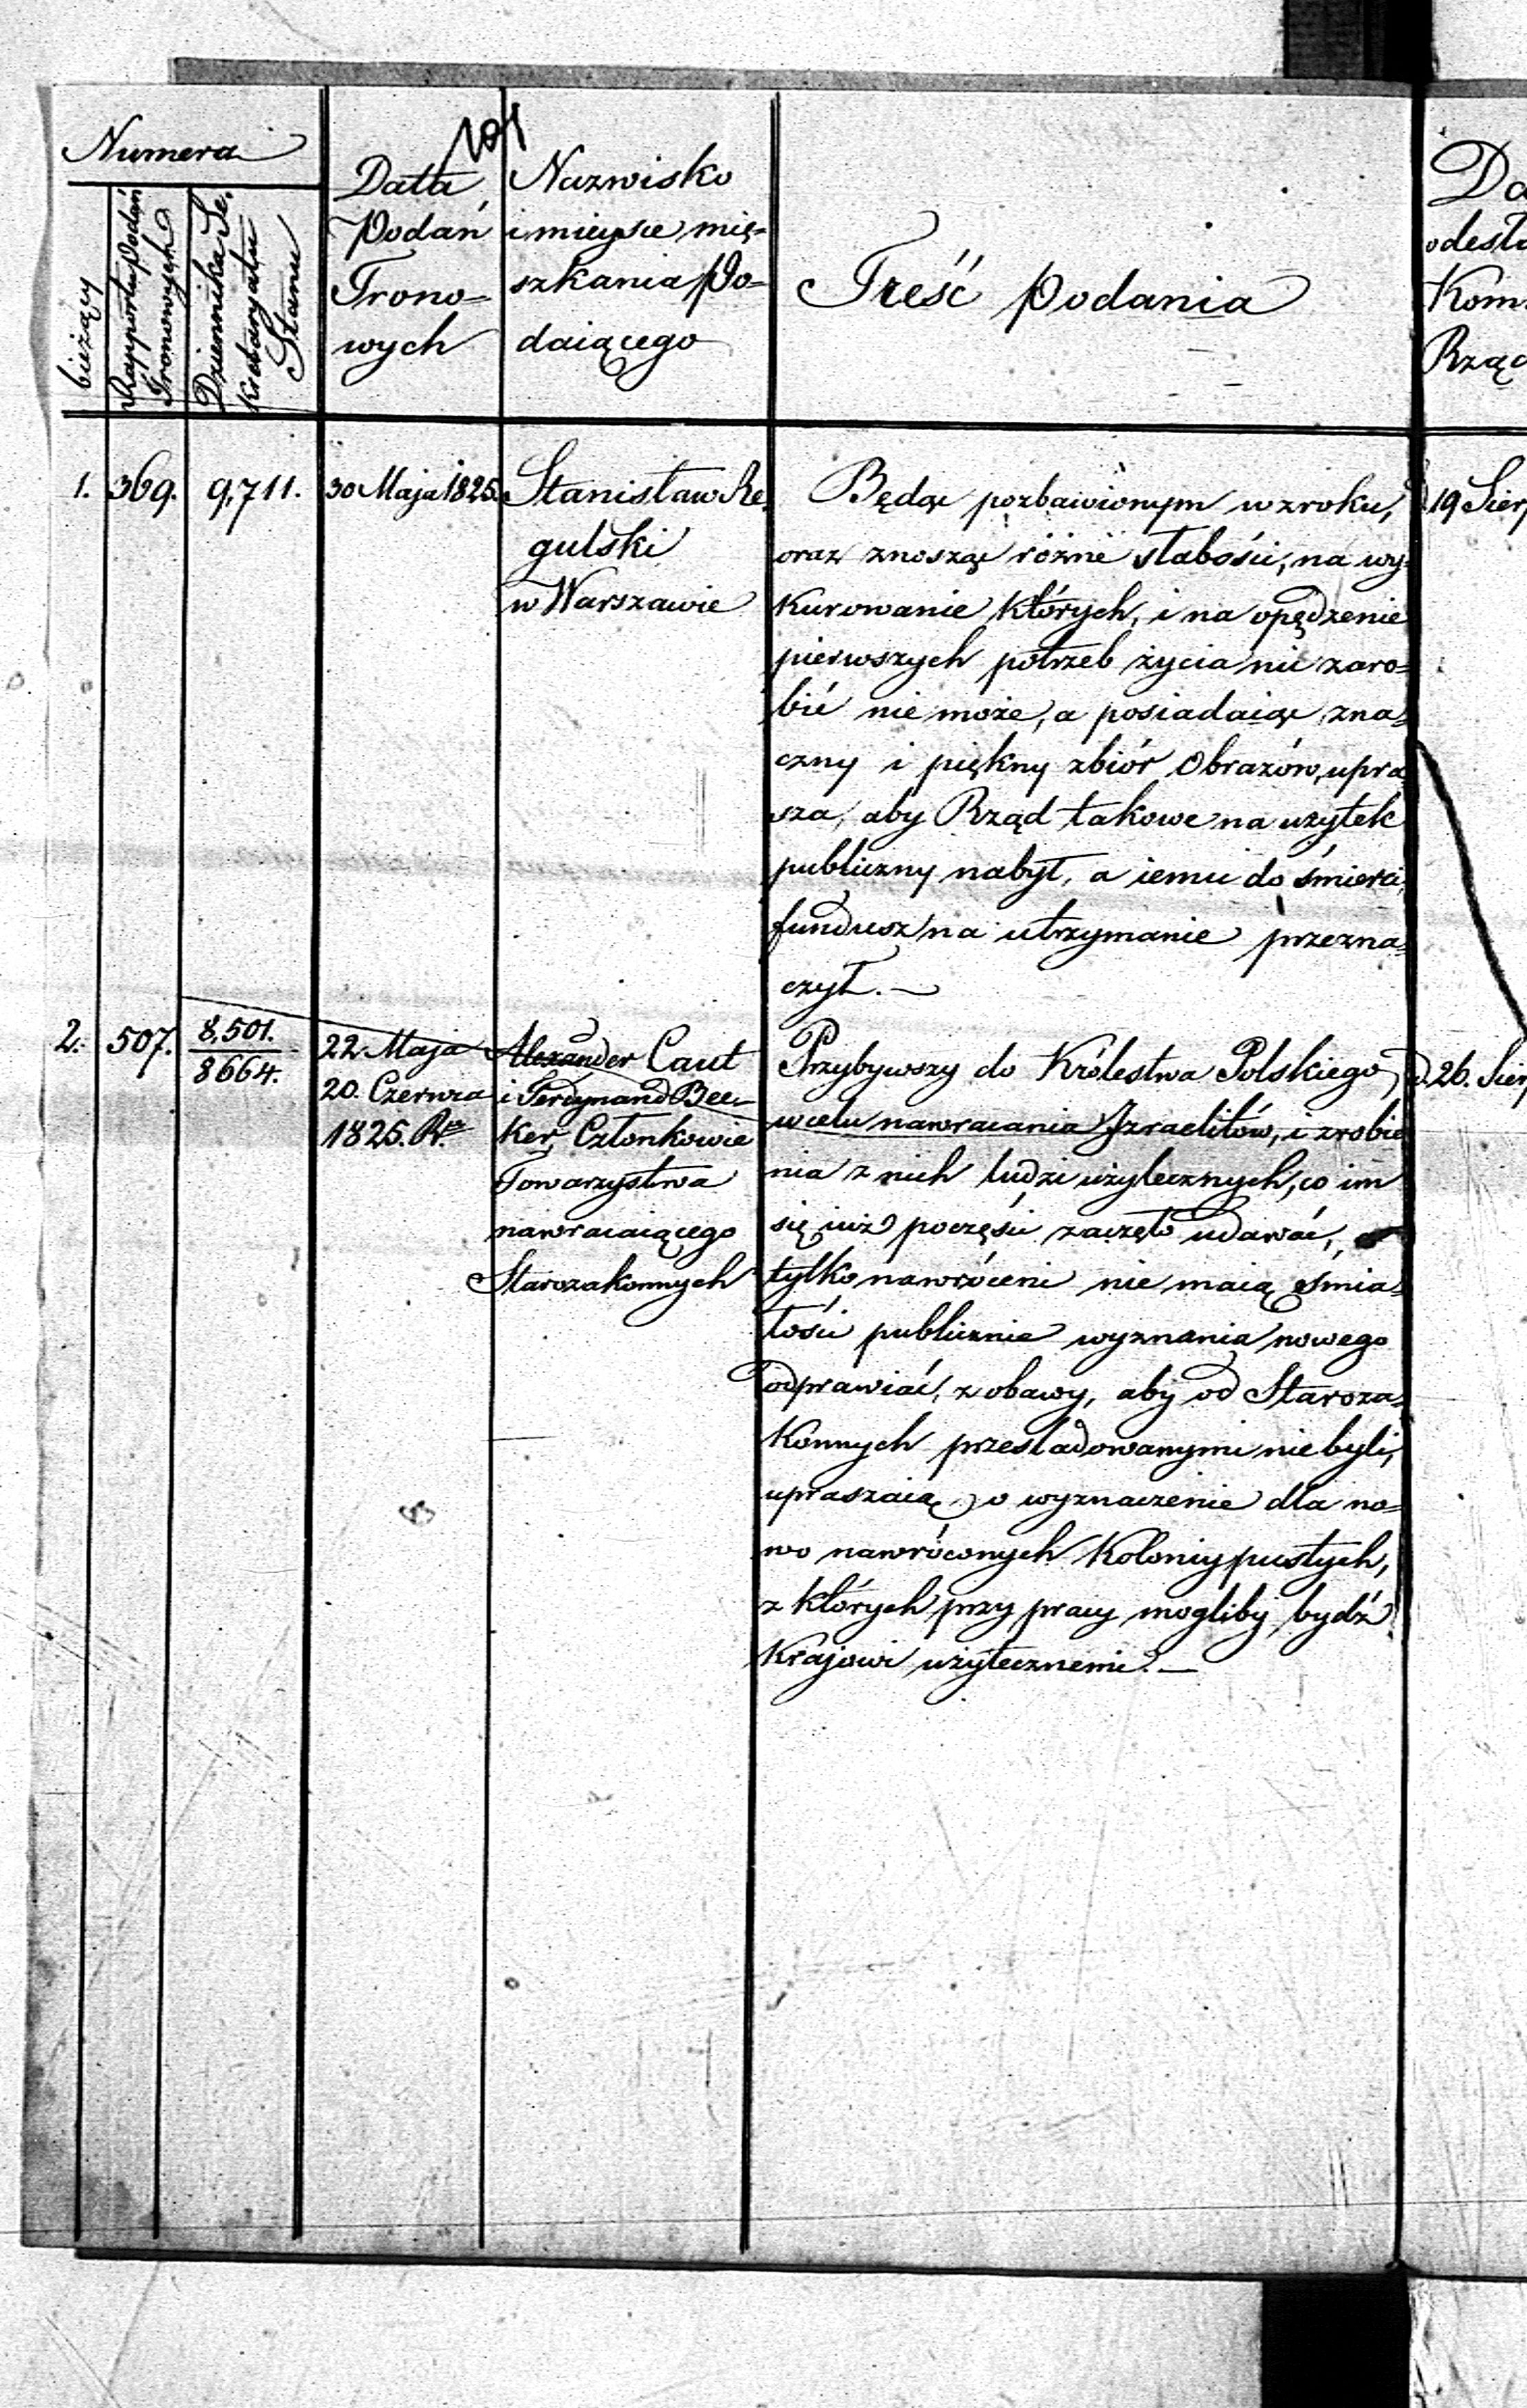 101
Numera
bieżący
Rapportu Podań
Tronowych
Dziennika Se-
kretaryatu
Stanu
Data
Podań
Trono=
wych
Nazwisko
i mieysce mię=
szkania Po=
daiącego
Treść Podania
Da
odesła
Kom
Rząd
1. 369. 9,711. 30 Maja 1825.
Stanisław Re,
gulski
w Warszawie
Będąc pozbawionym wzroku,
oraz znosząc różne słabości, na wy=
kurowanie których, i na opędzenie
pierwszych potrzeb życia nic zaro=
bić nie może, a posiadaiąc zna=
czny i piękny zbiór Obrazów, upra=
sza, aby Rząd takowe na użytek
publiczny nabył, a iemu do śmierci,
fundusz na utrzymanie przezna=
czył. —
d. 19 Sierp
2. 507. 8,501.
8664.
22 Maja
20. Czerwca
1825. R.
Alexander Caut
i Ferdynand Bec=
ker, Członkowie
Towarzystwa
nawracaiącego
Starozakonnych
Przybywszy do Królestwa Polskiego,
w celu nawracania Izraelitów, i zrobie
nia z nich ludzi użytecznych, co im
się iuż poczęści zaczęło udawać,
tylko nawróceni nie maią śmia=
łości publicznie wyznania nowego
odprawiać, z obawy, aby od Staroza=
konnych prześladowanymi nie byli,
upraszaią, o wyznaczenie dla no=
wo nawróconych Koloniy pustych,
z których przy pracy mogliby bydź
Krajowi użytecznemi. —
d. 26. Sier